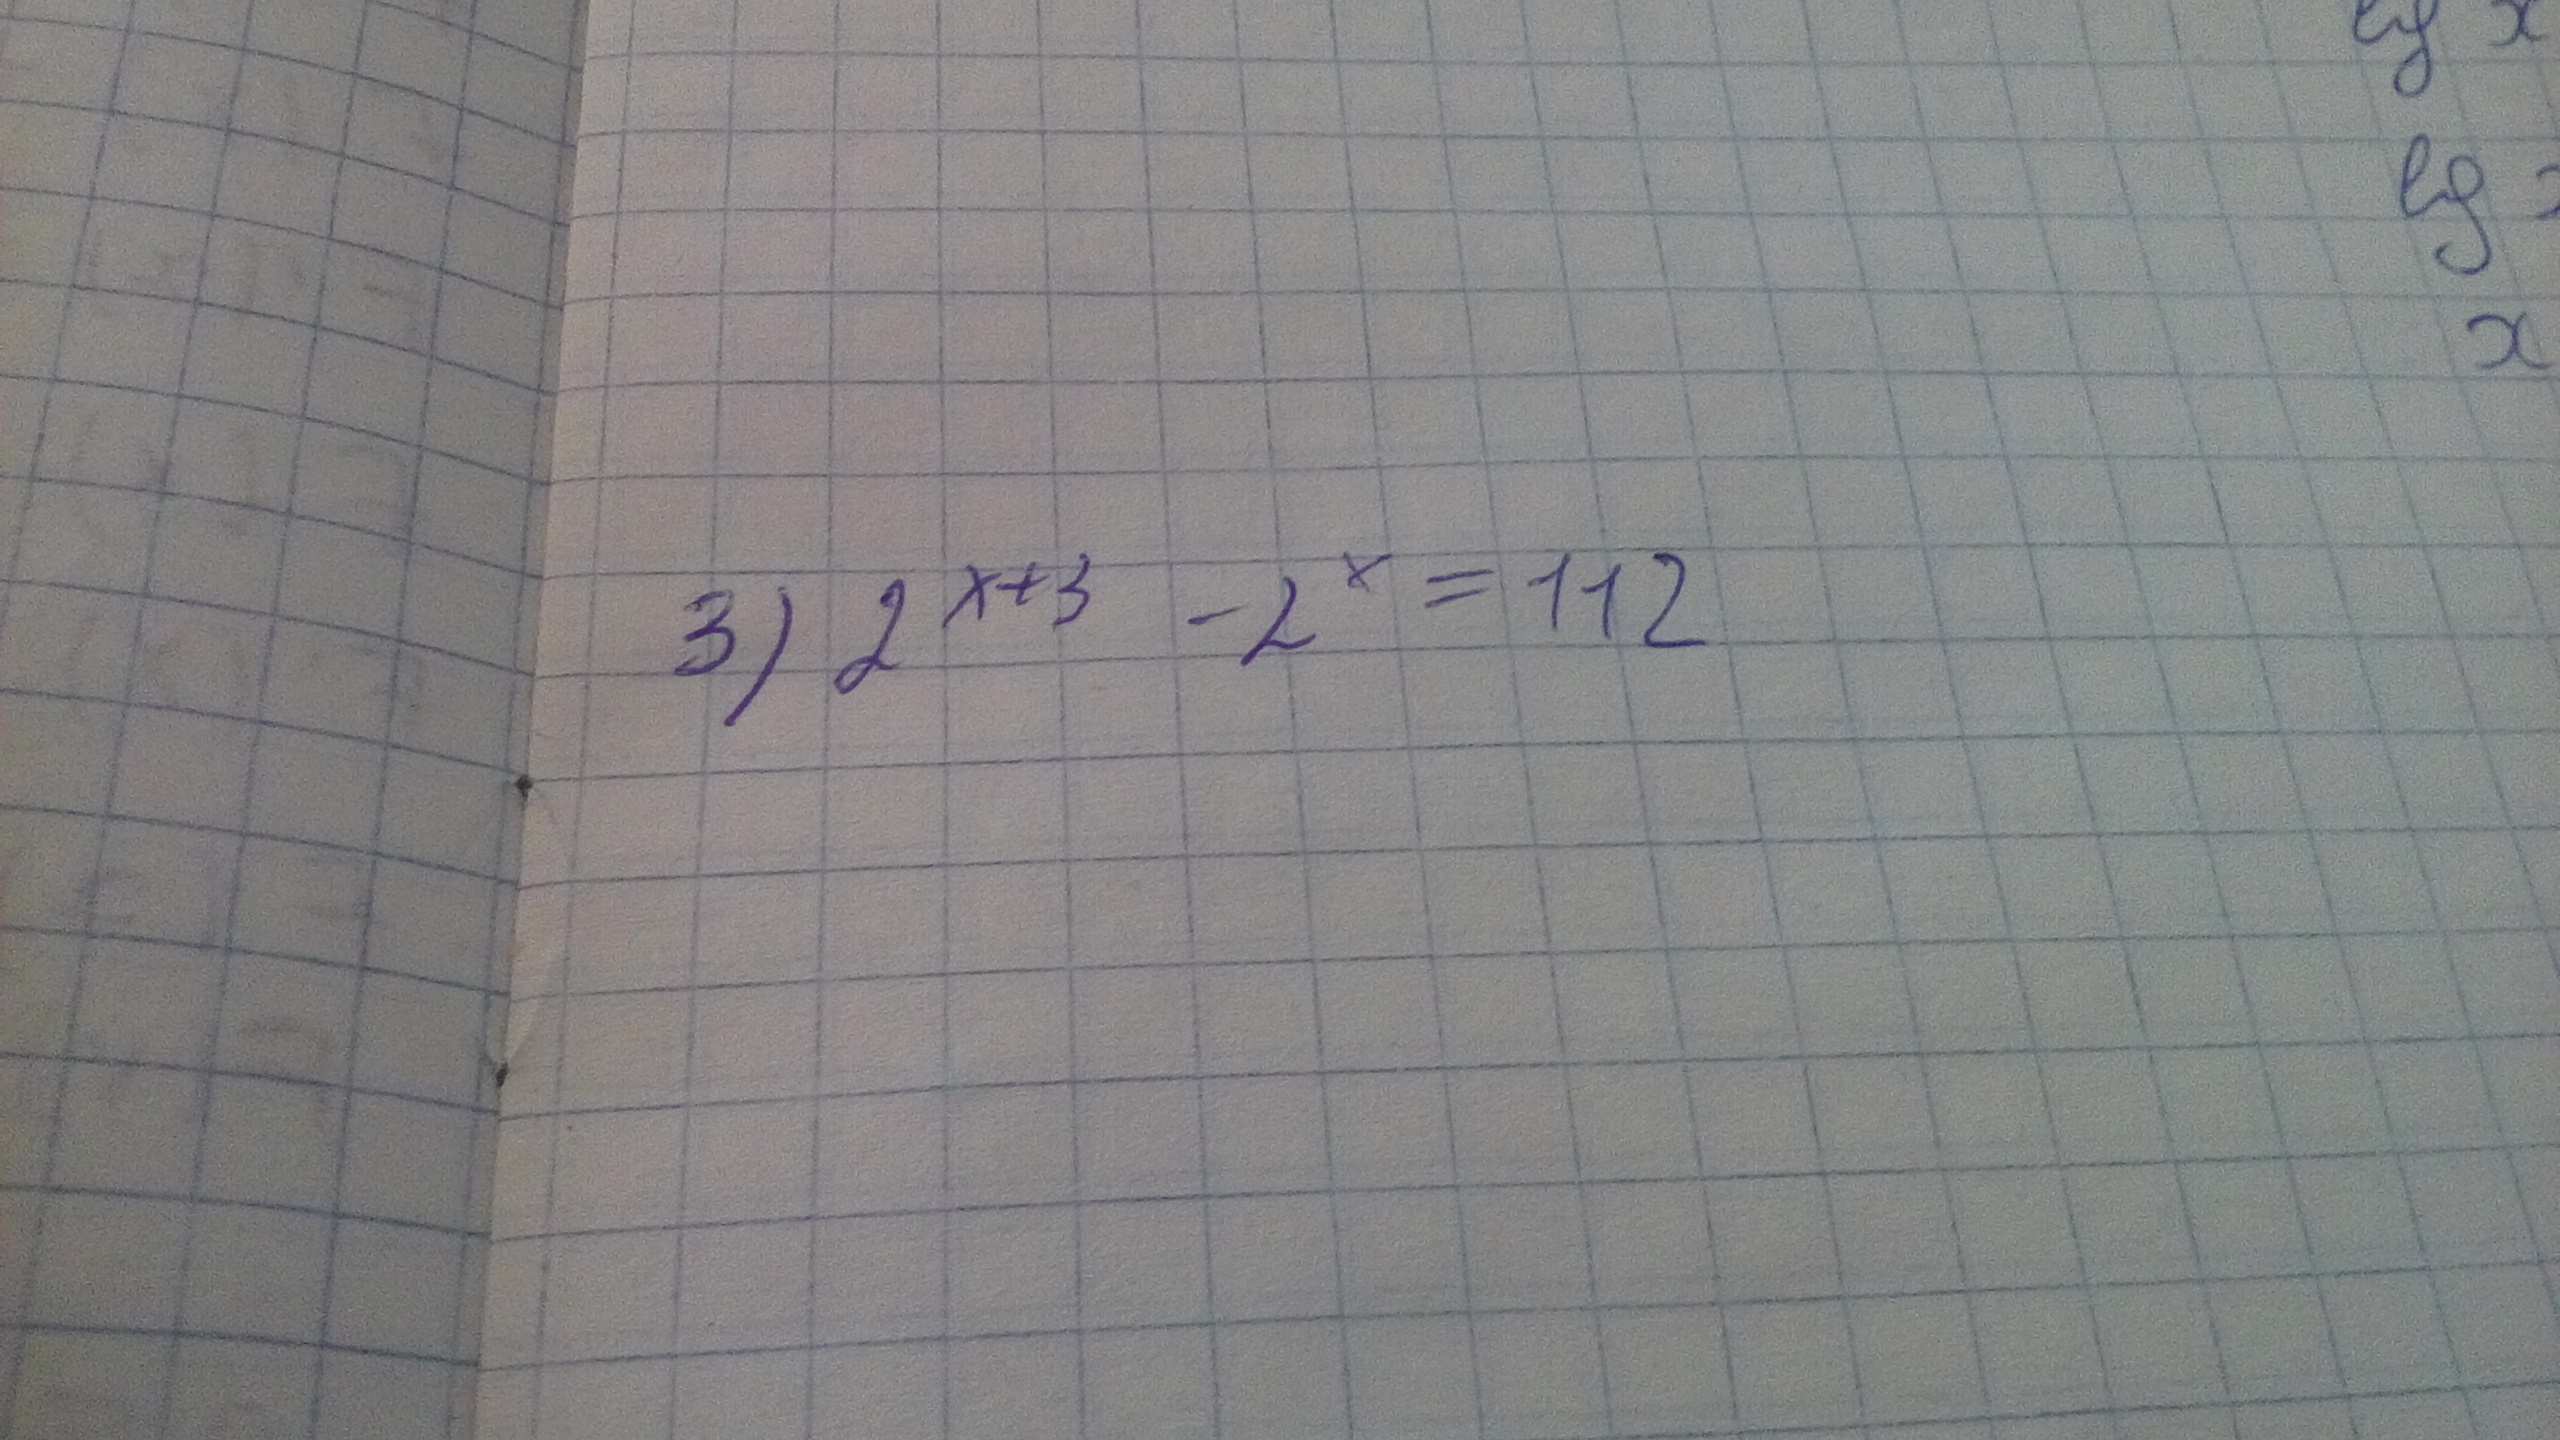 lg x
lg
x
3) 2^{x+3} - 2^x = 112